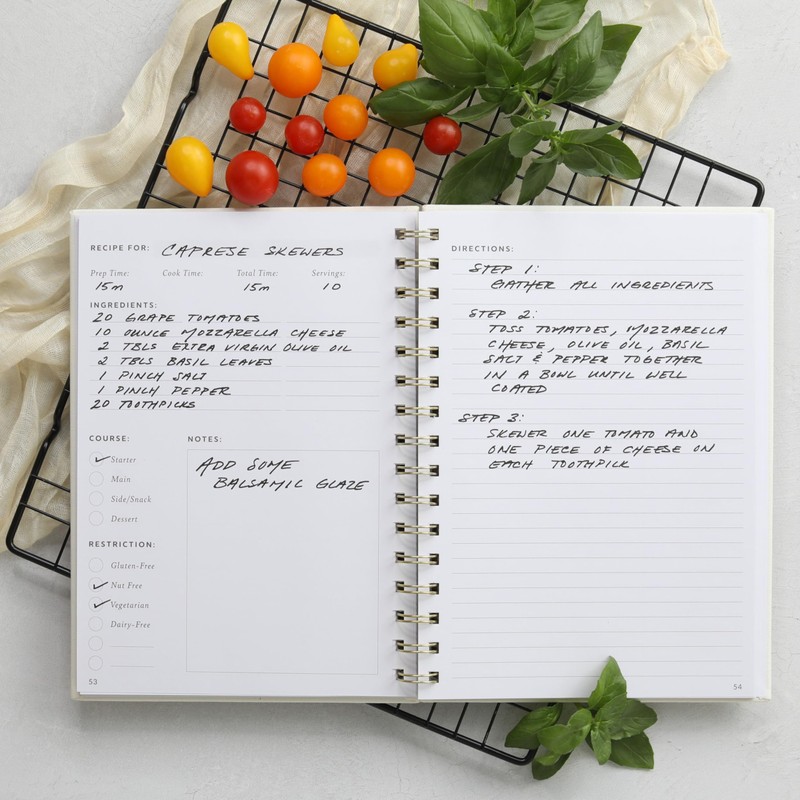 RECIPE FOR: CAPRESE SKEWERS
Prep Time: Cook Time: Total Time: Servings:
15m 15m 10
INGREDIENTS:
20 GRAPE TOMATOES
10 OUNCE MOZZARELLA CHEESE
2 TBLS EXTRA VIRGIN OLIVE OIL
2 TBLS BASIL LEAVES
1 PINCH SALT
1 PINCH PEPPER
20 TOOTHPICKS
COURSE:
Starter
Main
Side/Snack
Dessert
RESTRICTION:
Gluten-Free
Nut Free
Vegetarian
Dairy-Free
NOTES:
ADD SOME
BALSAMIC GLAZE
53
DIRECTIONS:
STEP 1:
GATHER ALL INGREDIENTS
STEP 2:
TOSS TOMATOES, MOZZARELLA
CHEESE, OLIVE OIL, BASIL
SALT & PEPPER TOGETHER
IN A BOWL UNTIL WELL
COATED
STEP 3:
SKEWER ONE TOMATO AND
ONE PIECE OF CHEESE ON
EACH TOOTHPICK
54